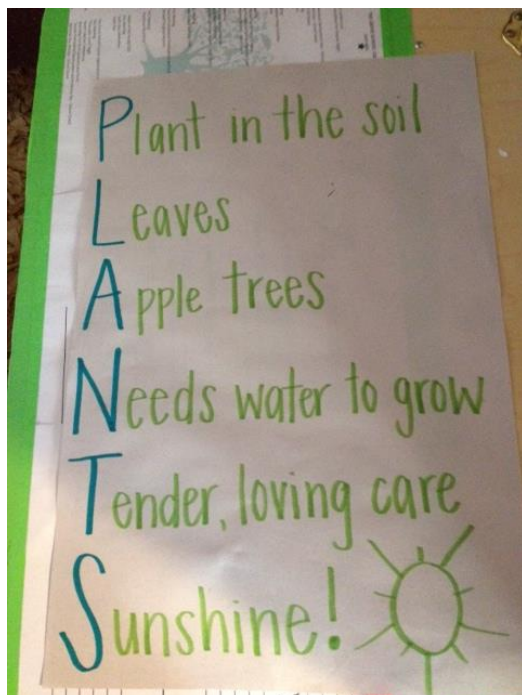 Plant in the soil
Leaves
Apple trees
Needs water to grow
Tender, loving care
Sunshine!